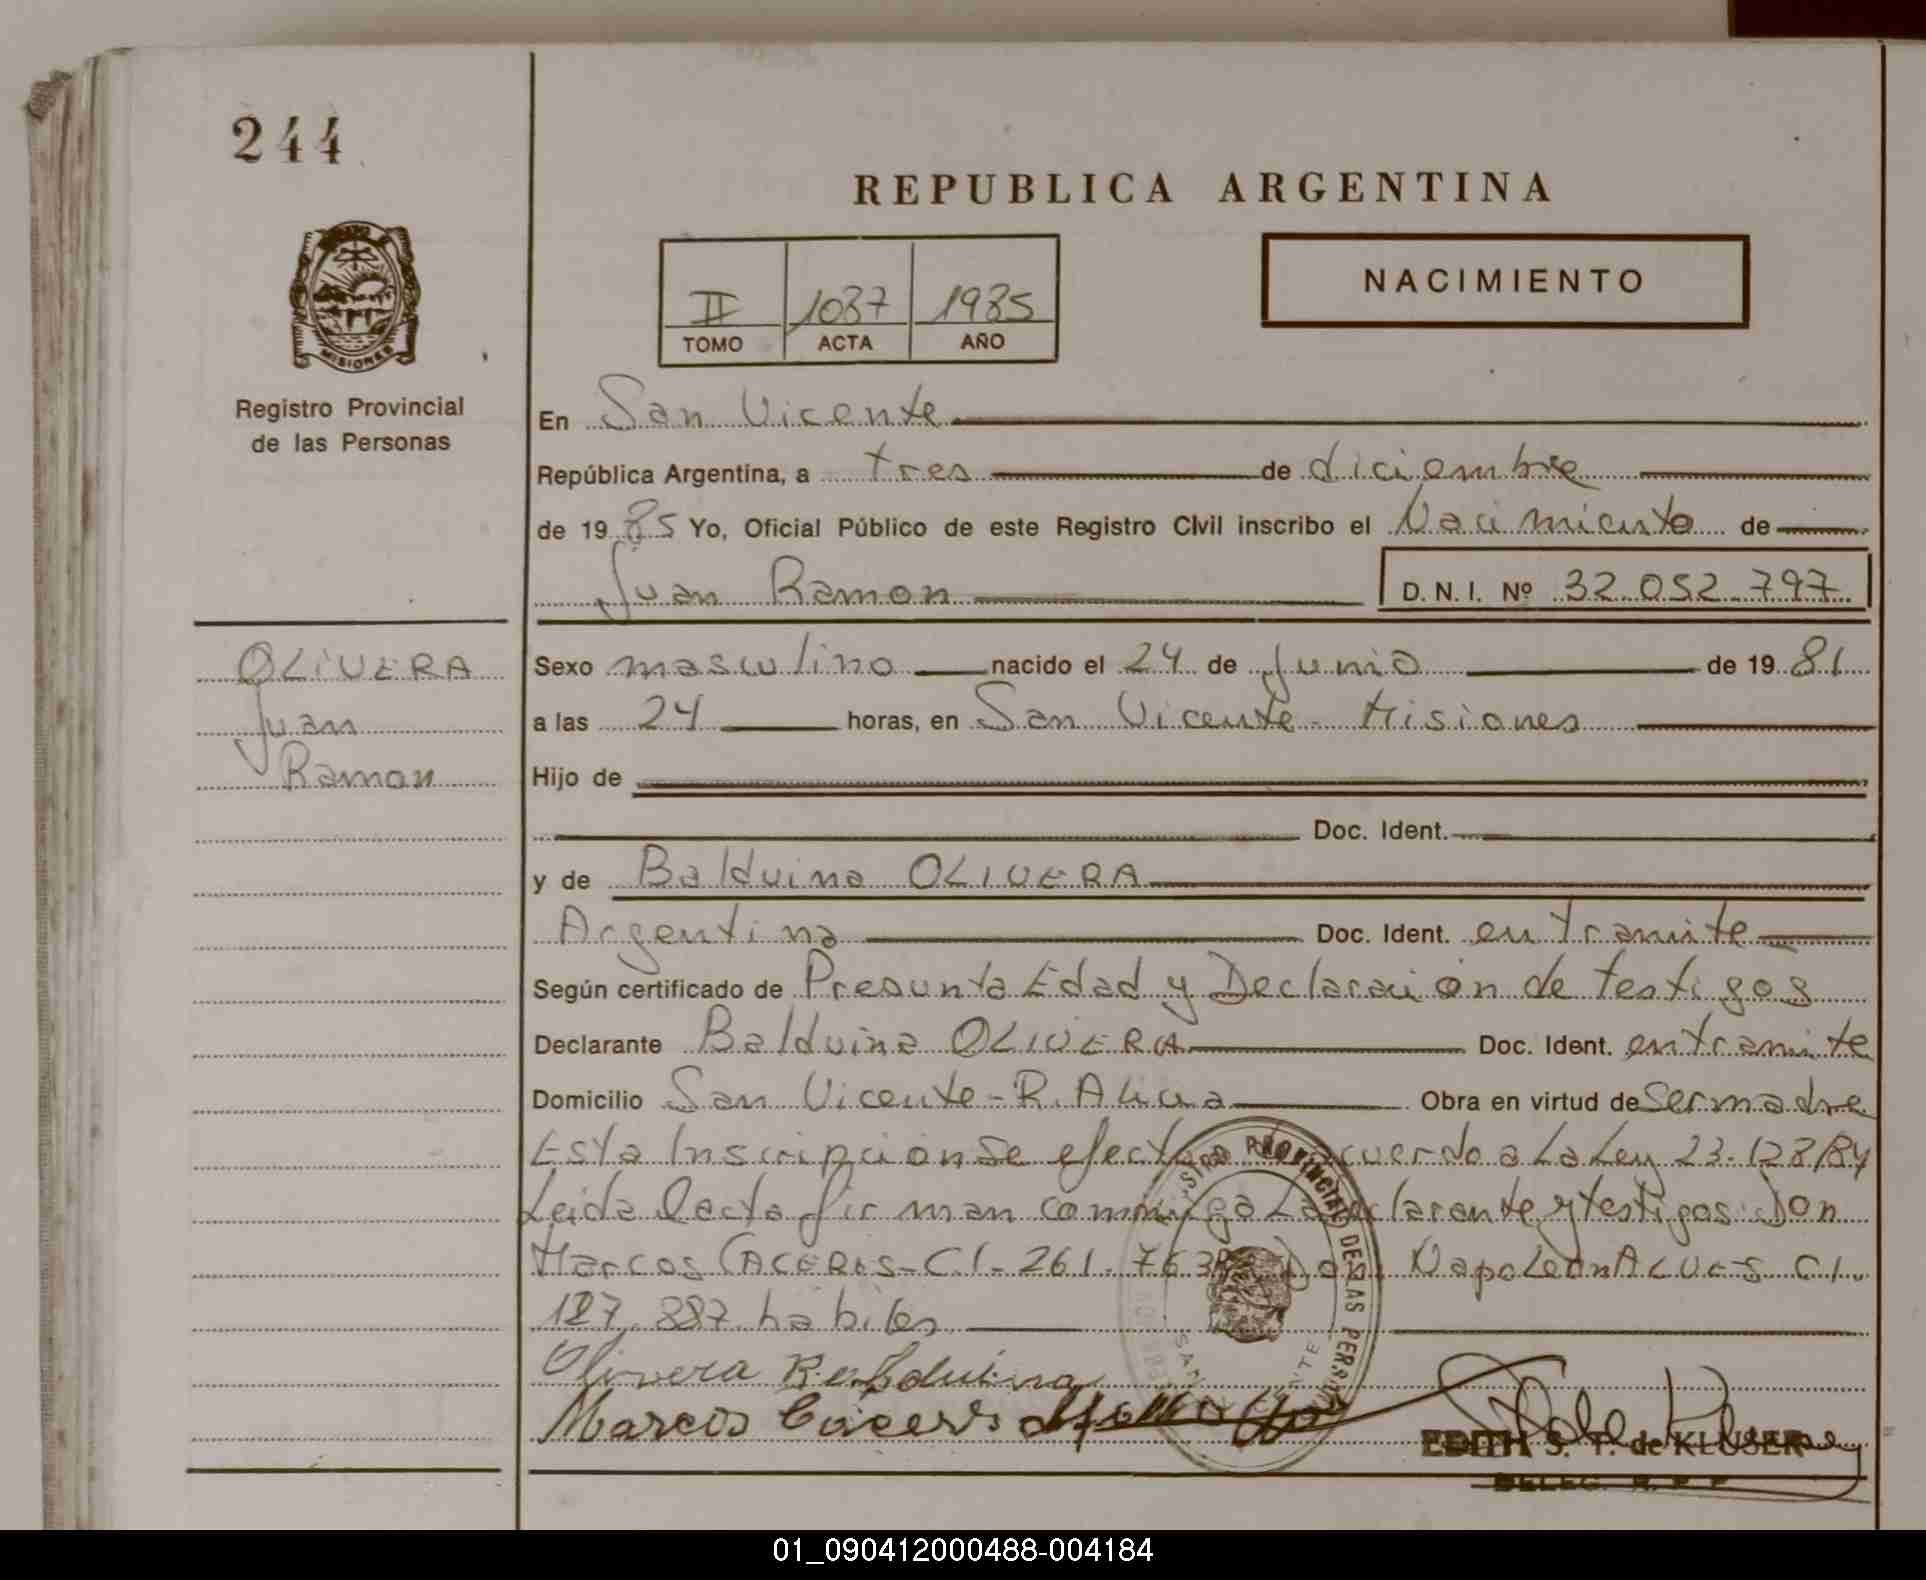 244
REPUBLICA ARGENTINA
NACIMIENTO
II 1037 1985
TOMO ACTA AÑO
MISIONES
Registro Provincial
de las Personas
En San Vicente
República Argentina, a tres de diciembre
de 1985 Yo, Oficial Público de este Registro Civil inscribo el Nacimiento de
Juan Ramon D.N.I. Nº 32.052.797
OLIVERA
Juan
Ramon
Sexo masculino nacido el 24 de Junio de 1981
a las 24 horas, en San Vicente - Misiones
Hijo de
Doc. Ident.
y de Balduina OLIVERA
Argentina Doc. Ident. en tramite
Según certificado de Presunta Edad y Declaración de testigos
Declarante Balduina OLIVERA Doc. Ident. en tramite
Domicilio San Vicente - R. Alicia Obra en virtud de ser madre
Esta Inscripcion se efectua cuerdo a La Ley 23.128/84
Leida l'acta firman conmigo La declarante y testigos: Don
Marcos CACERES - C.I. 261.763 Don Napoleon ALVES C.I.
127.887 habiles
REGISTRO PROVINCIAL DE LAS PERSONAS
SAN VICENTE
Olivera Balduina
Marcos Cáceres
EDITH S. T. de KLUSER
DELEG. R. P. P.
01_090412000488-004184